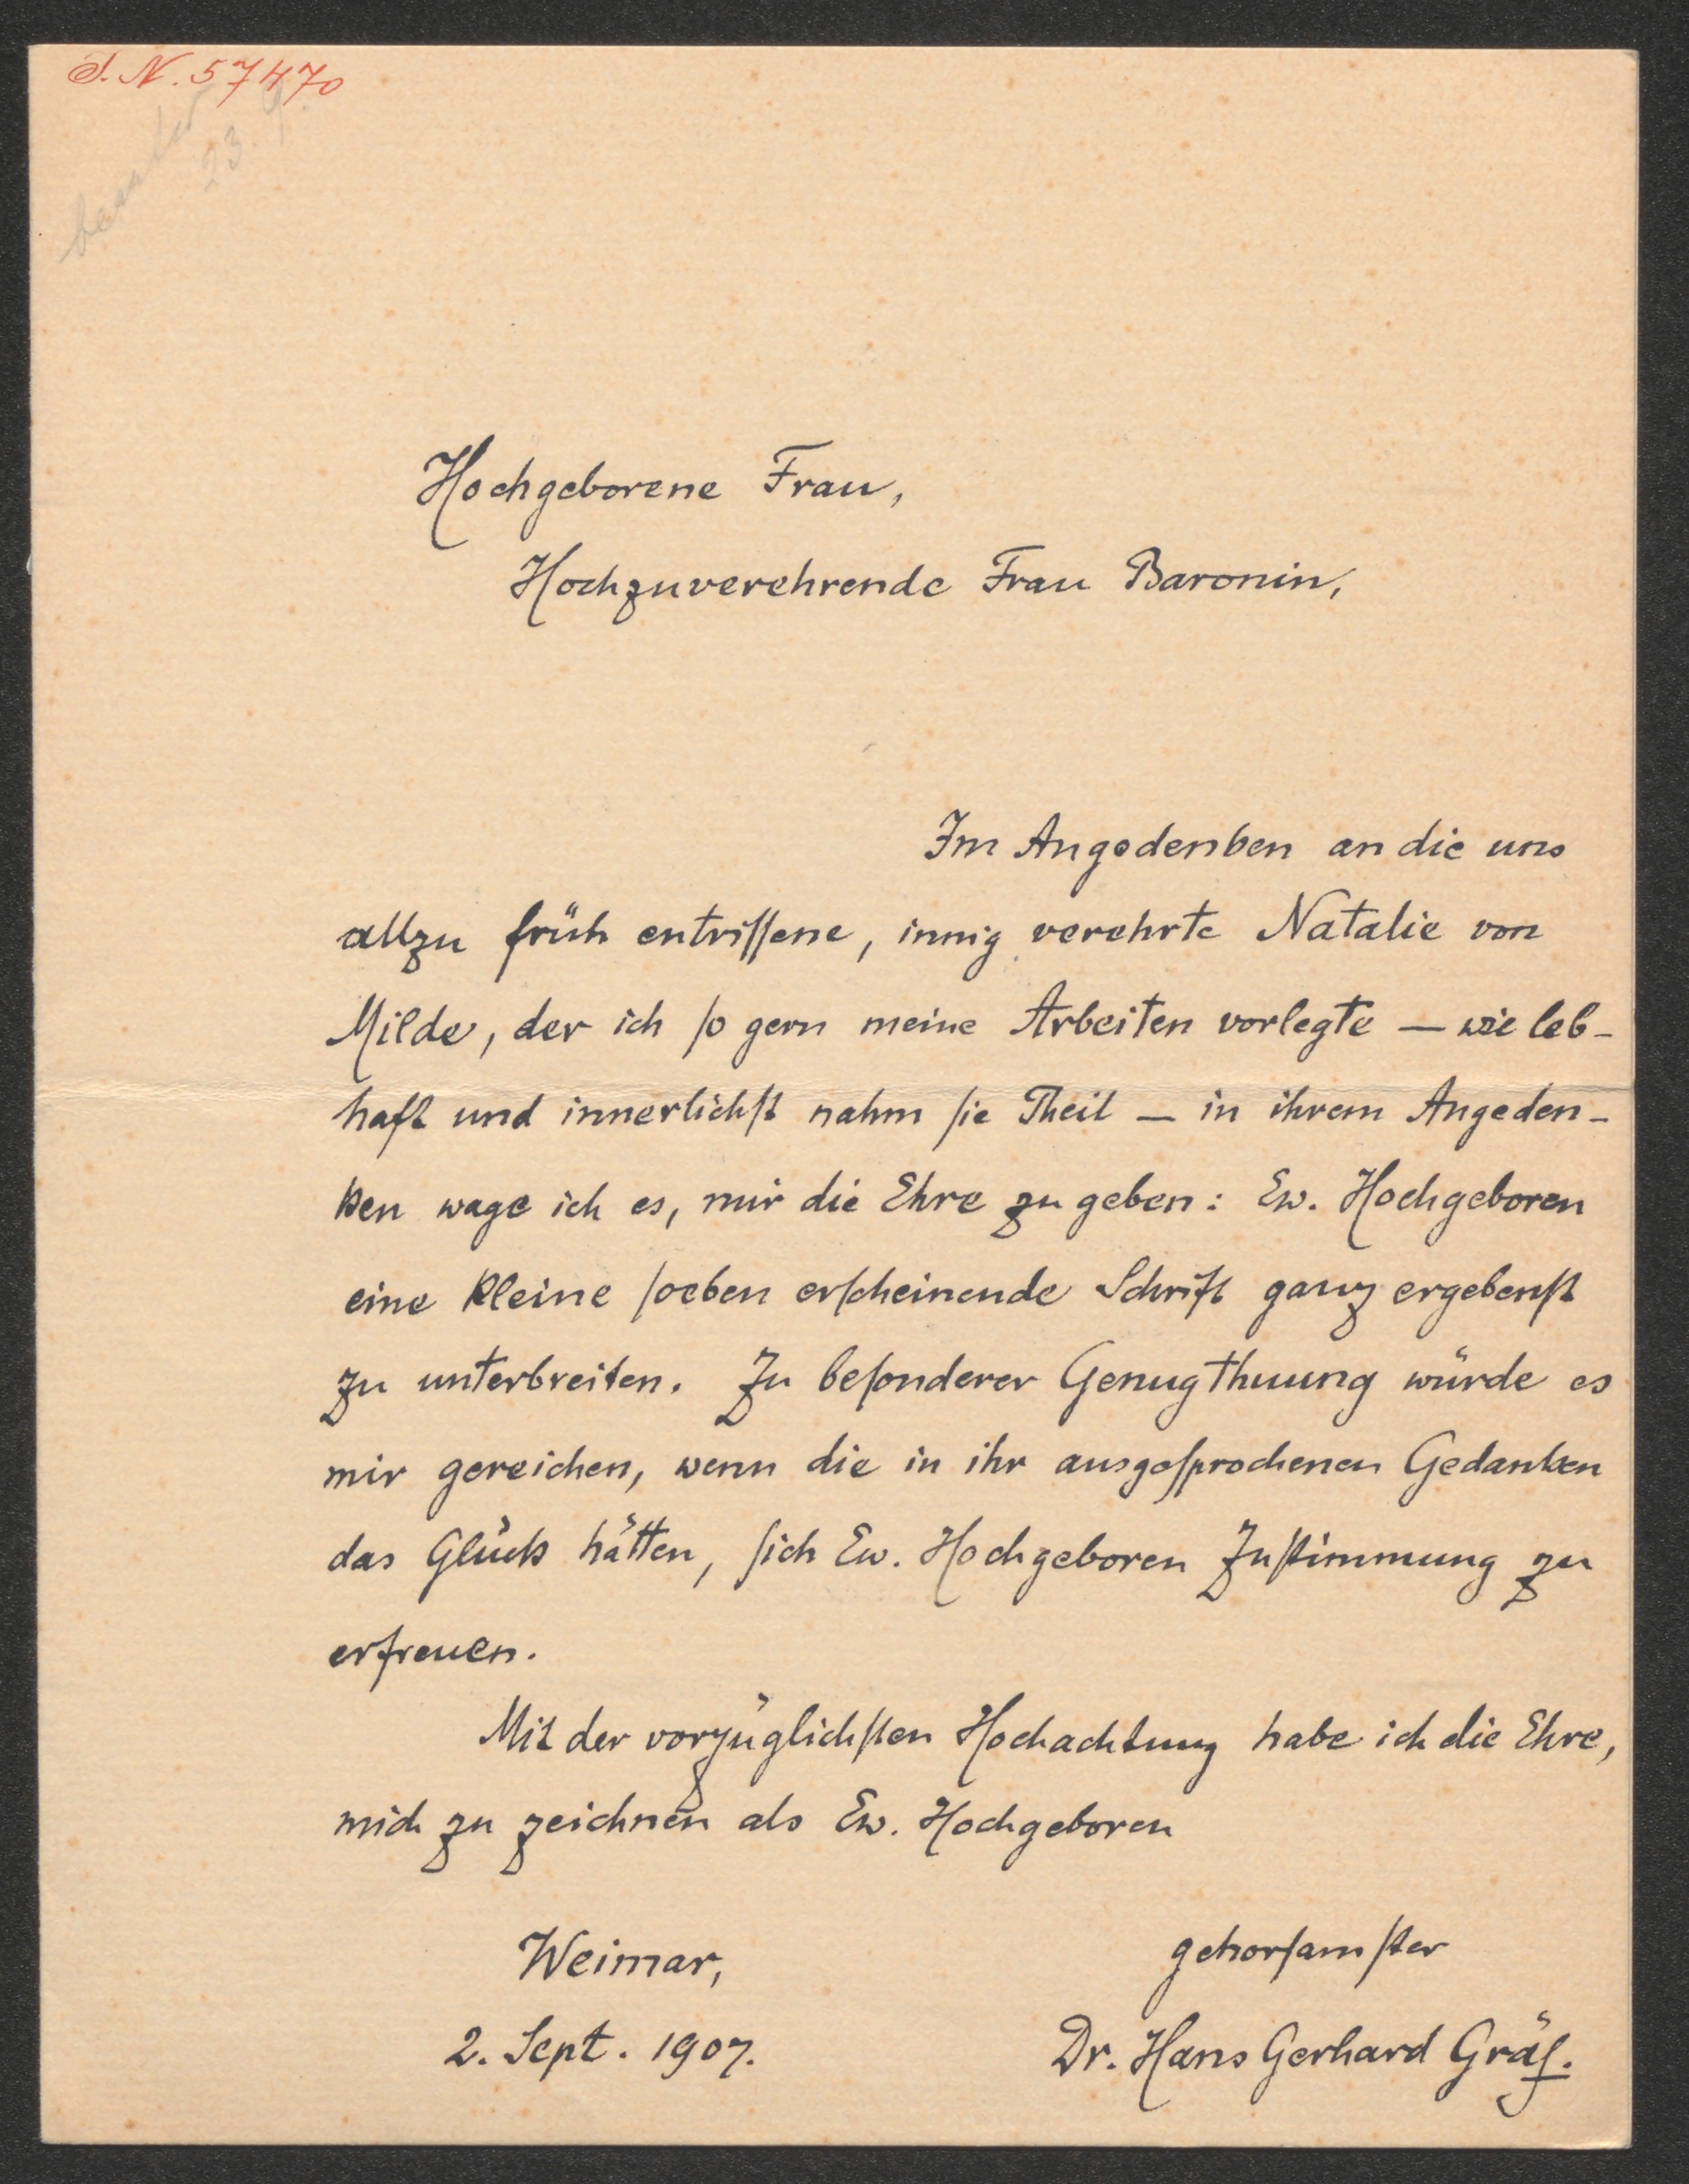 J. N. 57470
23. 9.
Hochgeborene Frau,
Hochzuverehrende Frau Baronin,
Im Angedenken an die uns
allzu früh entriſſene, innig verehrte Natalie von
Milde, der ich ſo gern meine Arbeiten vorlegte — wie leb-
haft und innerlichſt nahm ſie Theil — in ihrem Angeden-
ken wage ich es, mir die Ehre zu geben: Ew. Hochgeboren
eine kleine ſoeben erſcheinende Schrift ganz ergebenſt
zu unterbreiten. Zu beſonderer Genugthuung würde es
mir gereichen, wenn die in ihr ausgeſprochenen Gedanken
das Glück hätten, ſich Ew. Hochgeboren Zuſtimmung zu
erfreuen.
Mit der vorzüglichſten Hochachtung habe ich die Ehre,
mich zu zeichnen als Ew. Hochgeboren
gehorſamſter
Weimar,
2. Sept. 1907.
Dr. Hans Gerhard Gräf.